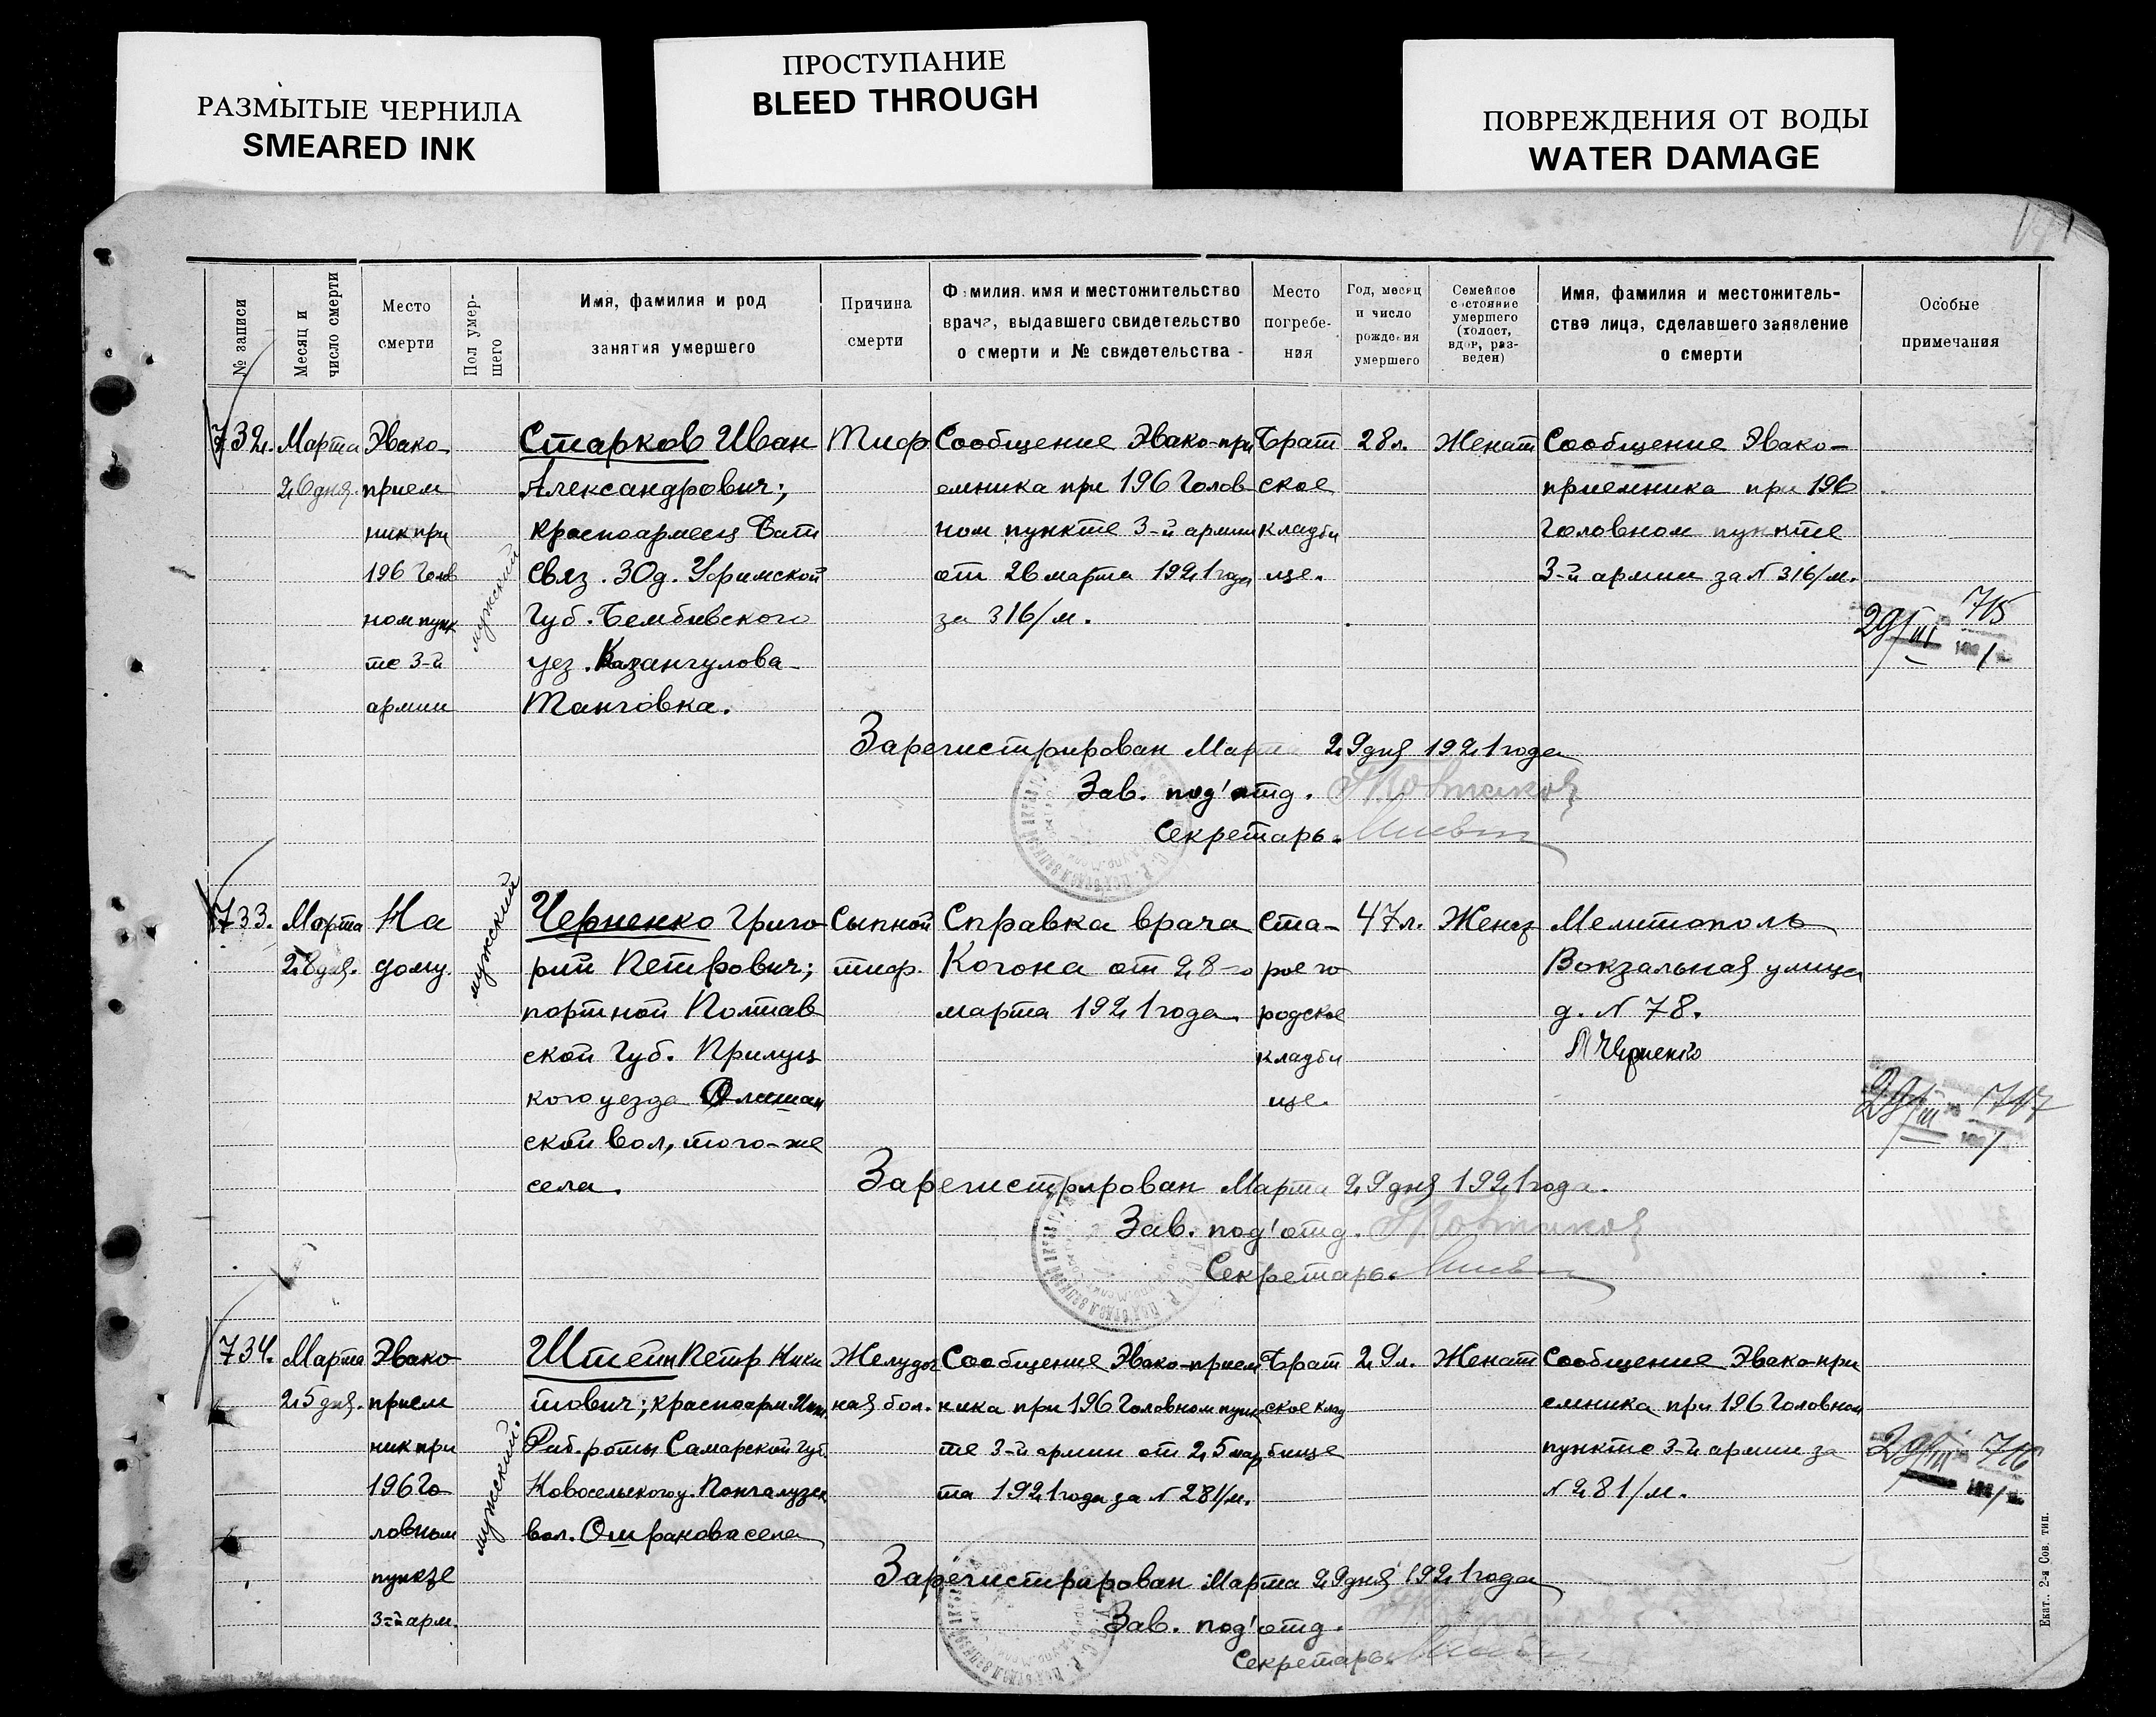 РАЗМЫТЫЕ ЧЕРНИЛА
SMEARED INK
ПРОСТУПАНИЕ
BLEED THROUGH
ПОВРЕЖДЕНИЯ ОТ ВОДЫ
WATER DAMAGE
№ записи
Месяц и
число смерти
Место
смерти
Пол умер-
шего
Имя, фамилия и род
занятия умершего
Причина
смерти
Фамилия, имя и местожительство
врача, выдавшего свидетельство
о смерти и № свидетельства
Место
погребе-
ния
Год, месяц
и число
рождения
умершего
Семейное
состояние
умершего
(холост,
вдов, раз-
веден)
Имя, фамилия и местожитель-
ства лица, сделавшего заявление
о смерти
Особые
примечания
732.
Марта
26 дня.
Эвако-
прием
ник при
196 Голов
ном пунк
те 3-й
армии
мужской
Старков Иван
Александрович;
красноармеец Бат
Связ. 30д. Уфимской
Губ. Бембивского
уез. Казангулова-
Танговка.
Тиф
Сообщение Эвако-при
емника при 196 Голов
ном пункте 3-й армии
от 26 марта 1921 года
за 316/м.
Брат
ское
кладби
ще.
28 л.
Женат
Сообщение Эвако-
приемника при 196
Головном пункте
3-й армии за N 316/м.
29/III 715
Зарегистрирован Марта 29 дня 1921 года
Зав. под'отд.
Секретарь.
733.
Марта
28 дня.
На
дому.
мужской
Черненко Григо-
рий Петрович;
портной Полтав
ской Губ. Прилуц
кого уезда Олишан
ской вол, того-же
села.
Сыпной
тиф.
Справка врача
Когона от 28-го
марта 1921 года
Ста-
рое го
родское
кладби
ще.
47 л.
Женат
Мелитополь
Вокзальная улица
д. N 78.
Черненко
29/III 717
Зарегистрирован Марта 29 дня 1921 года.
Зав. под'отд.
Секретарь.
734.
Марта
25 дня.
Эвако-
прием
ник при
196 Го-
ловном
пункте
3-й арм.
мужской.
Штейн Петр Ники
тович; красноарм
Раб. роты Самарской Губ.
Новосельского у.
вол. села
Желудоч
ная бол.
Сообщение Эвако-прием
ника при 196 Головном пунк
те 3-й армии от 25 мар
та 1921 года за N 281/м.
Брат
ское клад
бище
29 л.
Женат
Сообщение Эвако-при
емника при 196 Головном
пункте 3-й армии за
N 281/м.
29/III 716
Зарегистрирован Марта 29 дня 1921 года
Зав. под'отд.
Секретарь.
Екат., 2-я Сов. тип.